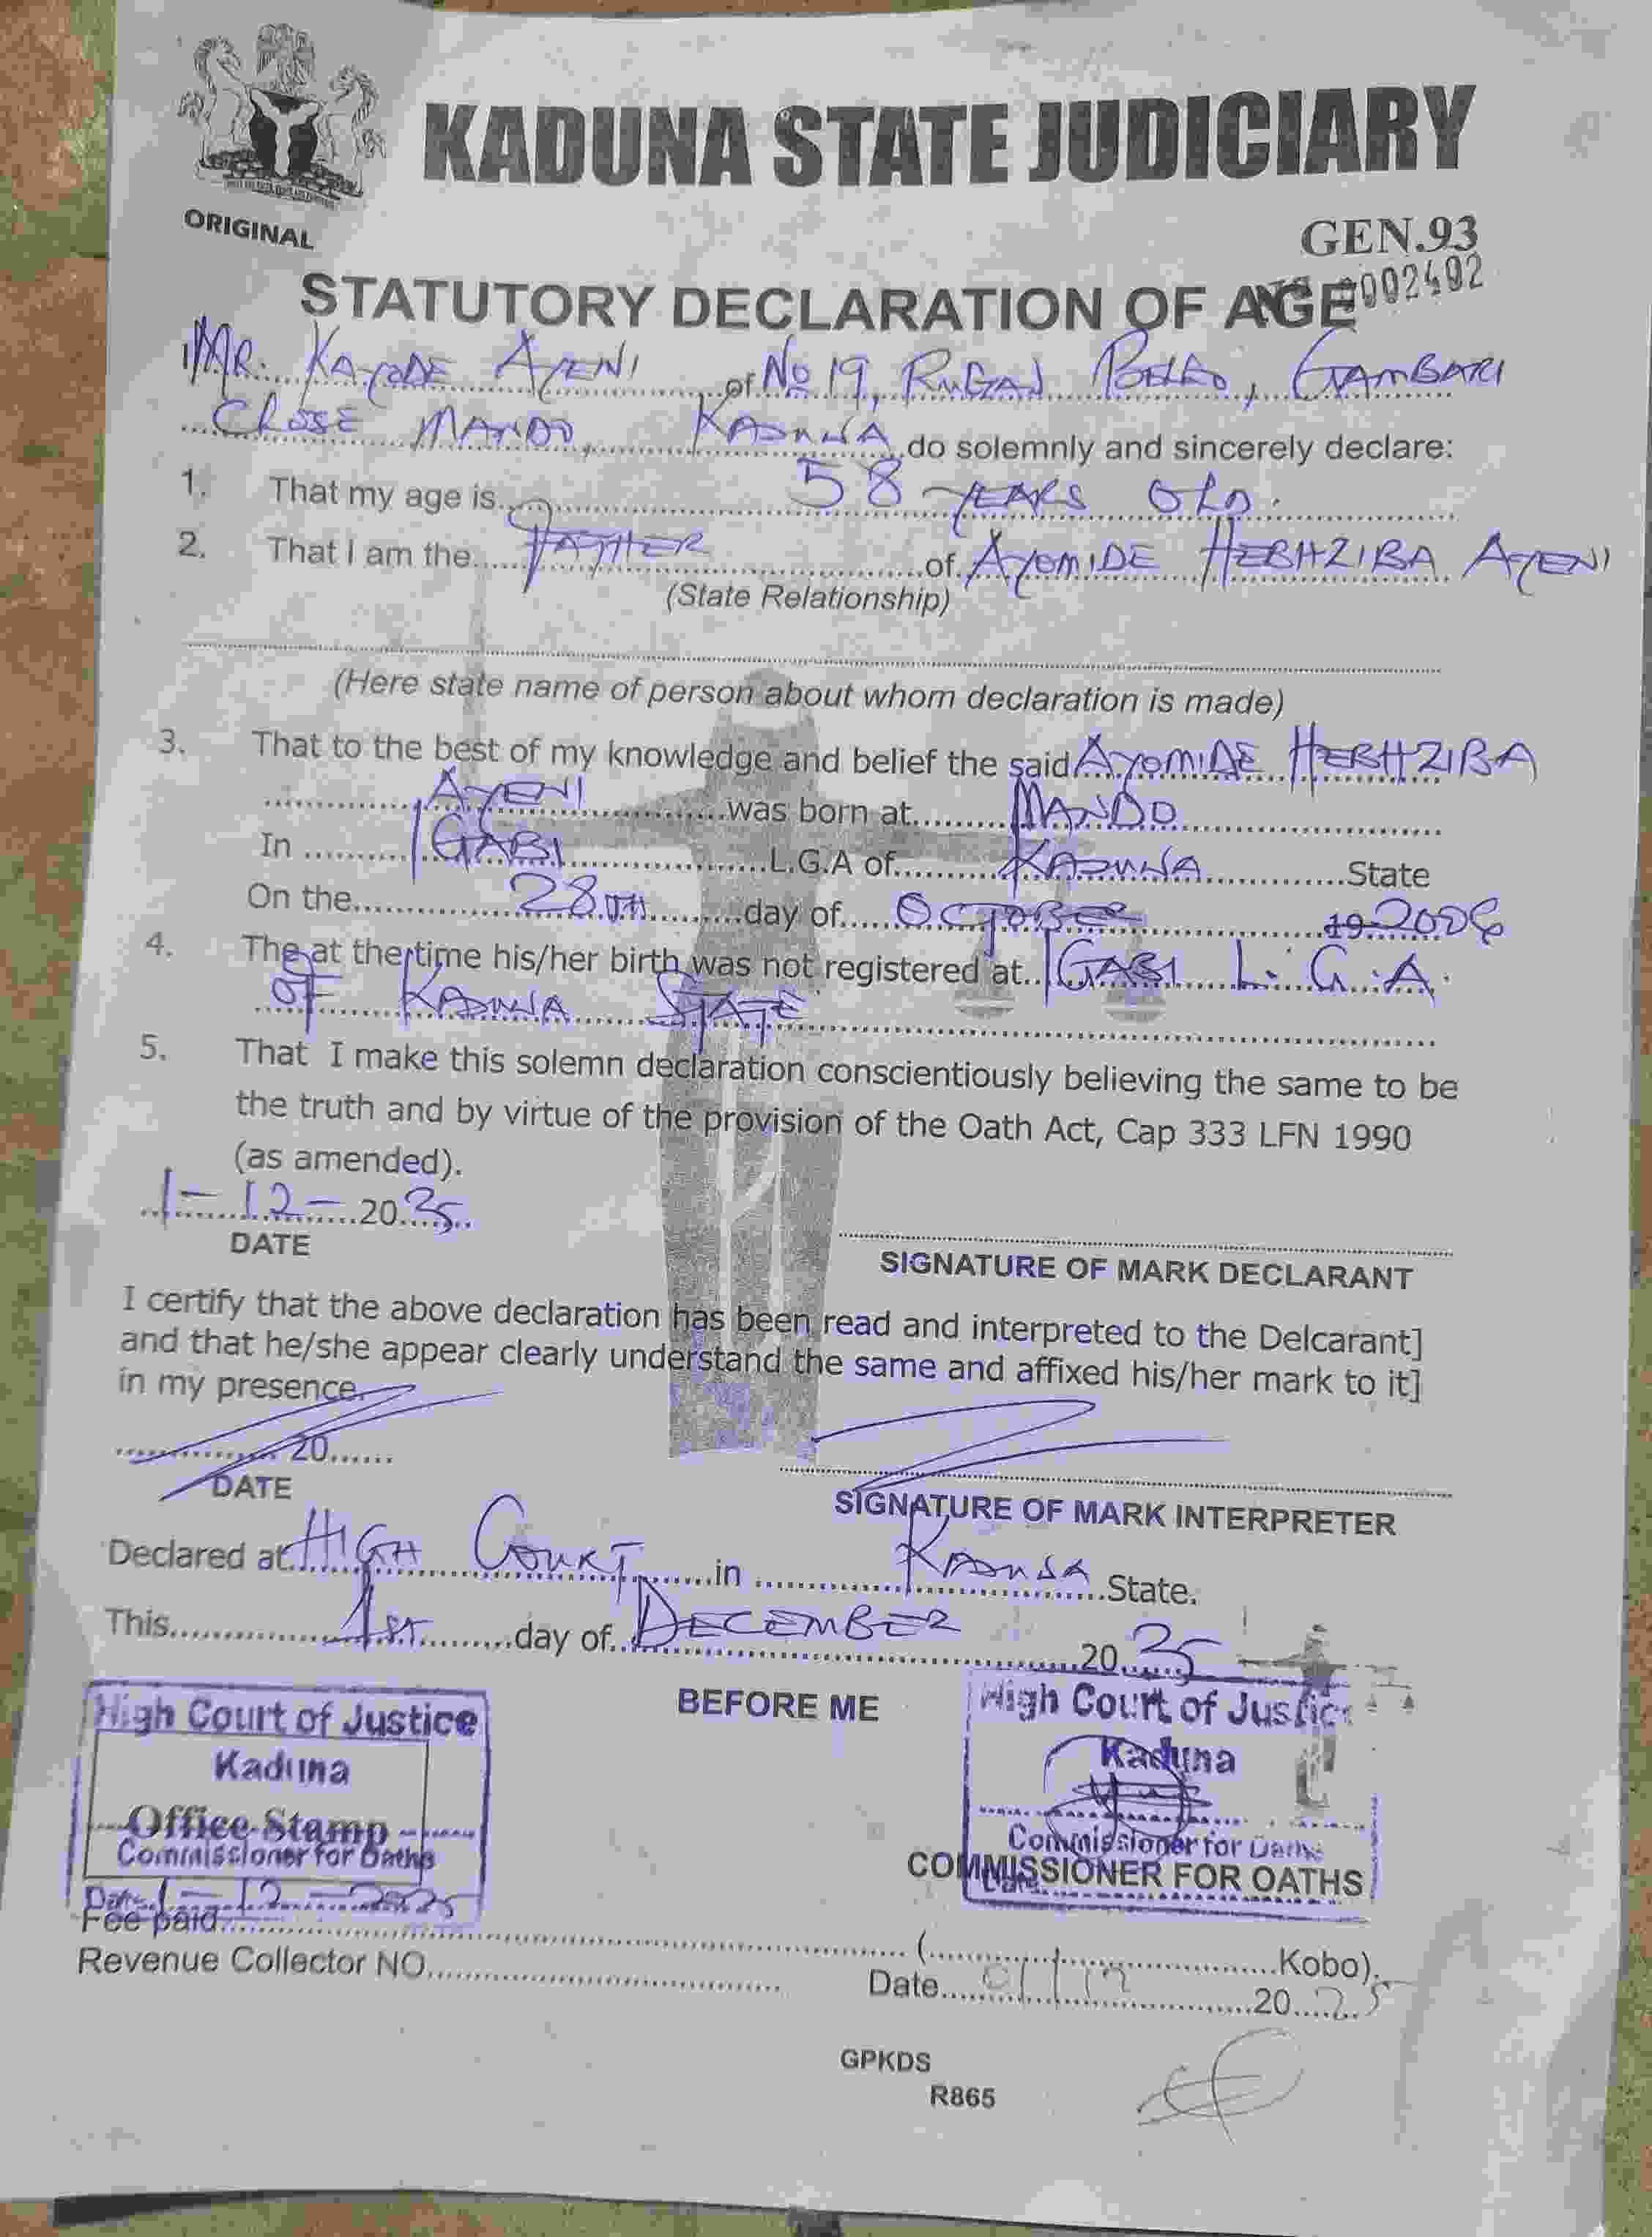 KADUNA STATE JUDICIARY
ORIGINAL
GEN.93
STATUTORY DECLARATION OF AGE 0002402
I MR. KAYODE AYENI of No 19, RUGAN BELLO, GAMBARI
CLOSE MANDO, KADUNA do solemnly and sincerely declare:
1. That my age is 58 YEARS OLD.
2. That I am the FATHER of AYOMIDE HEBHZIBA AYENI
(State Relationship)
(Here state name of person about whom declaration is made)
3. That to the best of my knowledge and belief the said AYOMIDE HEBHZIBA
AYENI was born at MANDO
In IGABI L.G.A of KADUNA State
On the 28TH day of OCTOBER 19 2006
4. The at the time his/her birth was not registered at IGABI L.G.A.
OF KADUNA STATE
5. That I make this solemn declaration conscientiously believing the same to be
the truth and by virtue of the provision of the Oath Act, Cap 333 LFN 1990
(as amended).
1-12-2025
DATE
SIGNATURE OF MARK DECLARANT
I certify that the above declaration has been read and interpreted to the Delcarant]
and that he/she appear clearly understand the same and affixed his/her mark to it]
in my presence.
20
DATE
SIGNATURE OF MARK INTERPRETER
Declared at HIGH COURT in KADUNA State.
This 1ST day of DECEMBER 2025
BEFORE ME
High Court of Justice
Kaduna
Office Stamp
Commissioner for Oaths
Date 1-12-2025
High Court of Justice
Kaduna
Commissioner for Oaths
COMMISSIONER FOR OATHS
Fee paid ( Kobo).
Revenue Collector NO. Date 01/12 2025
GPKDS
R865